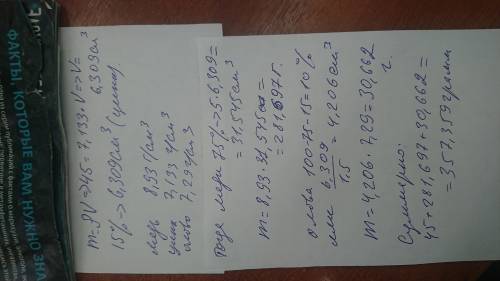 ФАКТЫ, КОТОРЫЕ ВАМ НУЖНО ЗНА
m=ρV=>45=7,133·V=>V=
6,309см³
15%->6,309см³ (цинка).
медь 8,93 г/см³
цинк 7,133 г/см³
олово 7,29 г/см³
Тогда меди 75%->5·6,309=
=31,545см³
m=8,93·31,545=
=281,697г.
олова 100-75-15=10%
или 6,309/1,5 4,206см³
m=4,206·7,29=30,662
г.
Суммарно:
45+281,697+30,662=
=357,359грамм